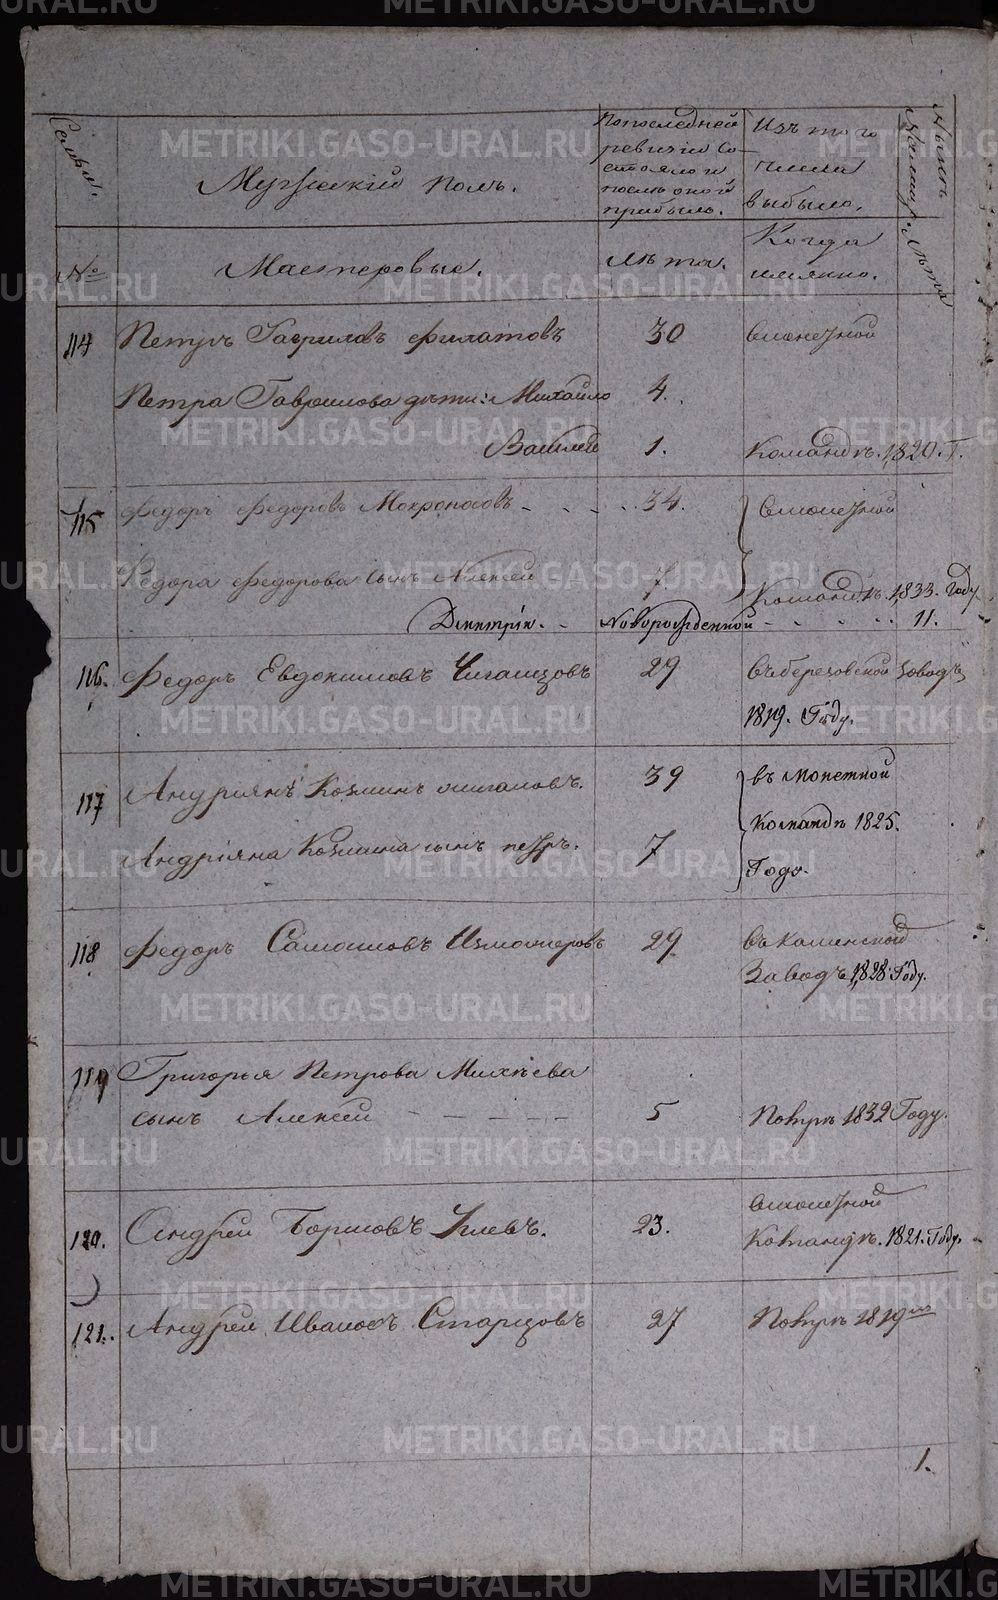 METRIKI.GASO-URAL.RU
Семьи.
Мужеский полъ.
По последней
ревизiи со-
стояло и
после оной
прибыло.
Изъ того
числа
выбыло.
Ныне
на лицо
Лета
№
Мастеровые.
Лѣта.
Когда
имянно.
114 Петръ Гавриловъ Филатовъ 30 Вмонетной
Петра Гаврилова дѣти: Михайло 4.
Василей 1. Командѣ. 1820. Г.
115 Федоръ Федоровъ Мокроносовъ - - - 34. Вмонетной
Федора Федорова сынъ Алексей 7. Командѣ. 1833. Году
Дмитрiй. - Новорожденной - - - - 11.
116. Федоръ Евдокимовъ 29 Въ березовской Заводъ
1819. Году.
117 Андрiянъ Козминъ 39 въ монетной
Командѣ 1825.
Андрiяна Козмина сынъ петръ. 7 Году.
118 Федоръ 29 Въ каменской
Заводъ 1828 Году.
119 Григорья Петрова Михѣева
сынъ Алексей - - - - - 5 Помре 1832 Году.
120. Андрей Борисовъ 23. Вмонетной
Командѣ. 1821. Году.
121. Андрей Ивановъ Старцовъ 27 Помре 1819го
1.